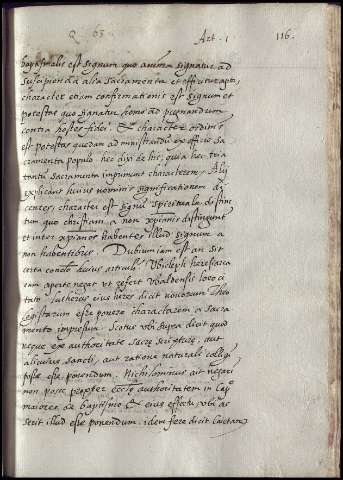 Q 63 Art. 1 116.
baptismalis est signum quo anima signatur ad
suscipienda alia sacramenta et efficitur apta,
character etiam confirmationis est signum et
potestas quo signatur homo ad pugnandum
contra hostes fidei. Et character ordinis
est potestas quedam administrandi ex officio sa
cramenta populo hec dixi de his, quia hec tria
tantum sacramenta imprimunt characterem. Alij
explicant huius nominis significationem di
centes, character est signum spirituale distinc
tum quo christiani a non xpianis distinguntur
et inter xpianos habentes illud signum a
non habentibus. Dubium iam est an sit
certa conclo huius articuli. Vbicleph heresiarca
eam aperte negat ut refert Vbaldensis loco ci
tato. Lutherus eius heres dicit novorum Theo
logistarum esse ponere characterem in sacra
mento impressum. Scotus ubi supra dicit quod
neque ex authoritate sacre scripture, aut
alicuius sancti, aut ratione naturali colligi
posse esse ponendum. Nichilominus ait negari
non posse propter eccle authoritatem in Cap
maiores de baptismo et eius effectu ubi as
serit illud esse ponendum. idem fere dicit Caietanus